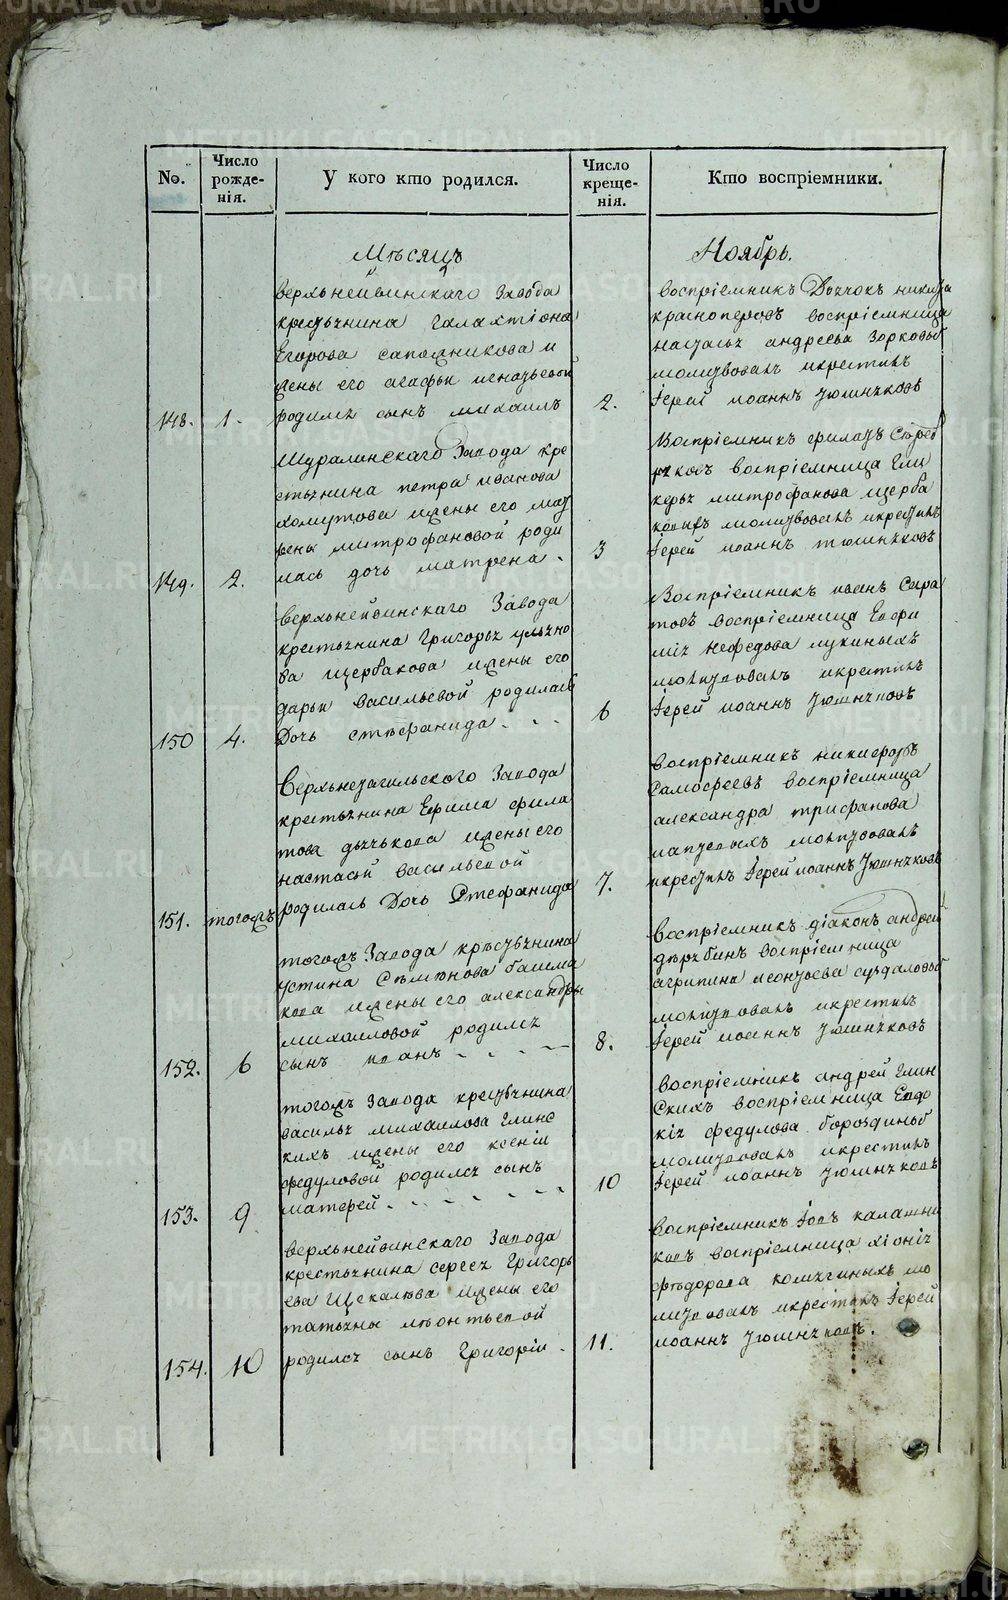 No.
Число рожде-нія.
У кого кто родился.
Число креще-нія.
Кто воспріемники.
Мѣсяцъ
Ноябрь.
верьхнейвинскаго завода
крестьянина галахтіона
Егорова сапожникова и
жены его агафьи
148. 1. родился сынъ михаилъ
воспріемникъ никита
красноперовъ воспріемница
наталья андреева
молитвовалъ икрестилъ
2. Іерей иоаннъ тюшняковъ
Шуралинскаго Завода кре
стьянина петра иванова
хомутова ижены его мат
рены митрофановой роди
149. 2. лась дочь матрена.
Воспріемникъ филатъ
воспріемница Гли
керья митрофанова щерба
молитвовалъ икрестилъ
3 Іерей иоаннъ тюшняковъ
верьхнейвинскаго Завода
крестьянина Григорья ульяно
ва щербакова ижены его
дарьи васильевой родилась
150 4. Дочь стефанида
Воспріемникъ иванъ
воспріемница Евфи
мія нефедова лукиныхъ
молитвовалъ икрестилъ
6 Іерей иоаннъ тюшняковъ
Верьхнетагильскаго Завода
крестьянина Ефима фила
това дьячкова ижены его
настасьи васильевой
151. тогожъ родилась Дочь Стефанида
воспріемникъ никифоръ
воспріемница
александра трифанова
молитвовалъ
7. икрестилъ Іерей иоаннъ тюшняковъ
тогожъ Завода крестьянина
устина Семенова башма
кова ижены его александры
михаиловой родился
152. 6 сынъ иванъ
воспріемникъ діаконъ андрей
дерябинъ воспріемница
агрипина леонтьева суздаловыхъ
молитвовалъ икрестилъ
8. Іерей иоаннъ тюшняковъ
тогожъ Завода крестьянина
василья михаилова глинс
кихъ ижены его ксеніи
федуловой родился сынъ
153. 9 матфей
воспріемникъ андрей глин
скихъ воспріемница Евдо
кія федулова бороздиныхъ
молитвовалъ икрестилъ
10 Іерей иоаннъ тюшняковъ
верьхнейвинскаго Завода
крестьянина сергея Григорь
ева Щекалева ижены его
татьяны леонтьевой
154. 10 родился сынъ Григорій
воспріемникъ Іовъ калашни
ковъ воспріемница хіонія
фёдорова мо
литвовалъ икрестилъ Іерей
11. иоаннъ тюшняковъ.
METRIKI.GASO-URAL.RU